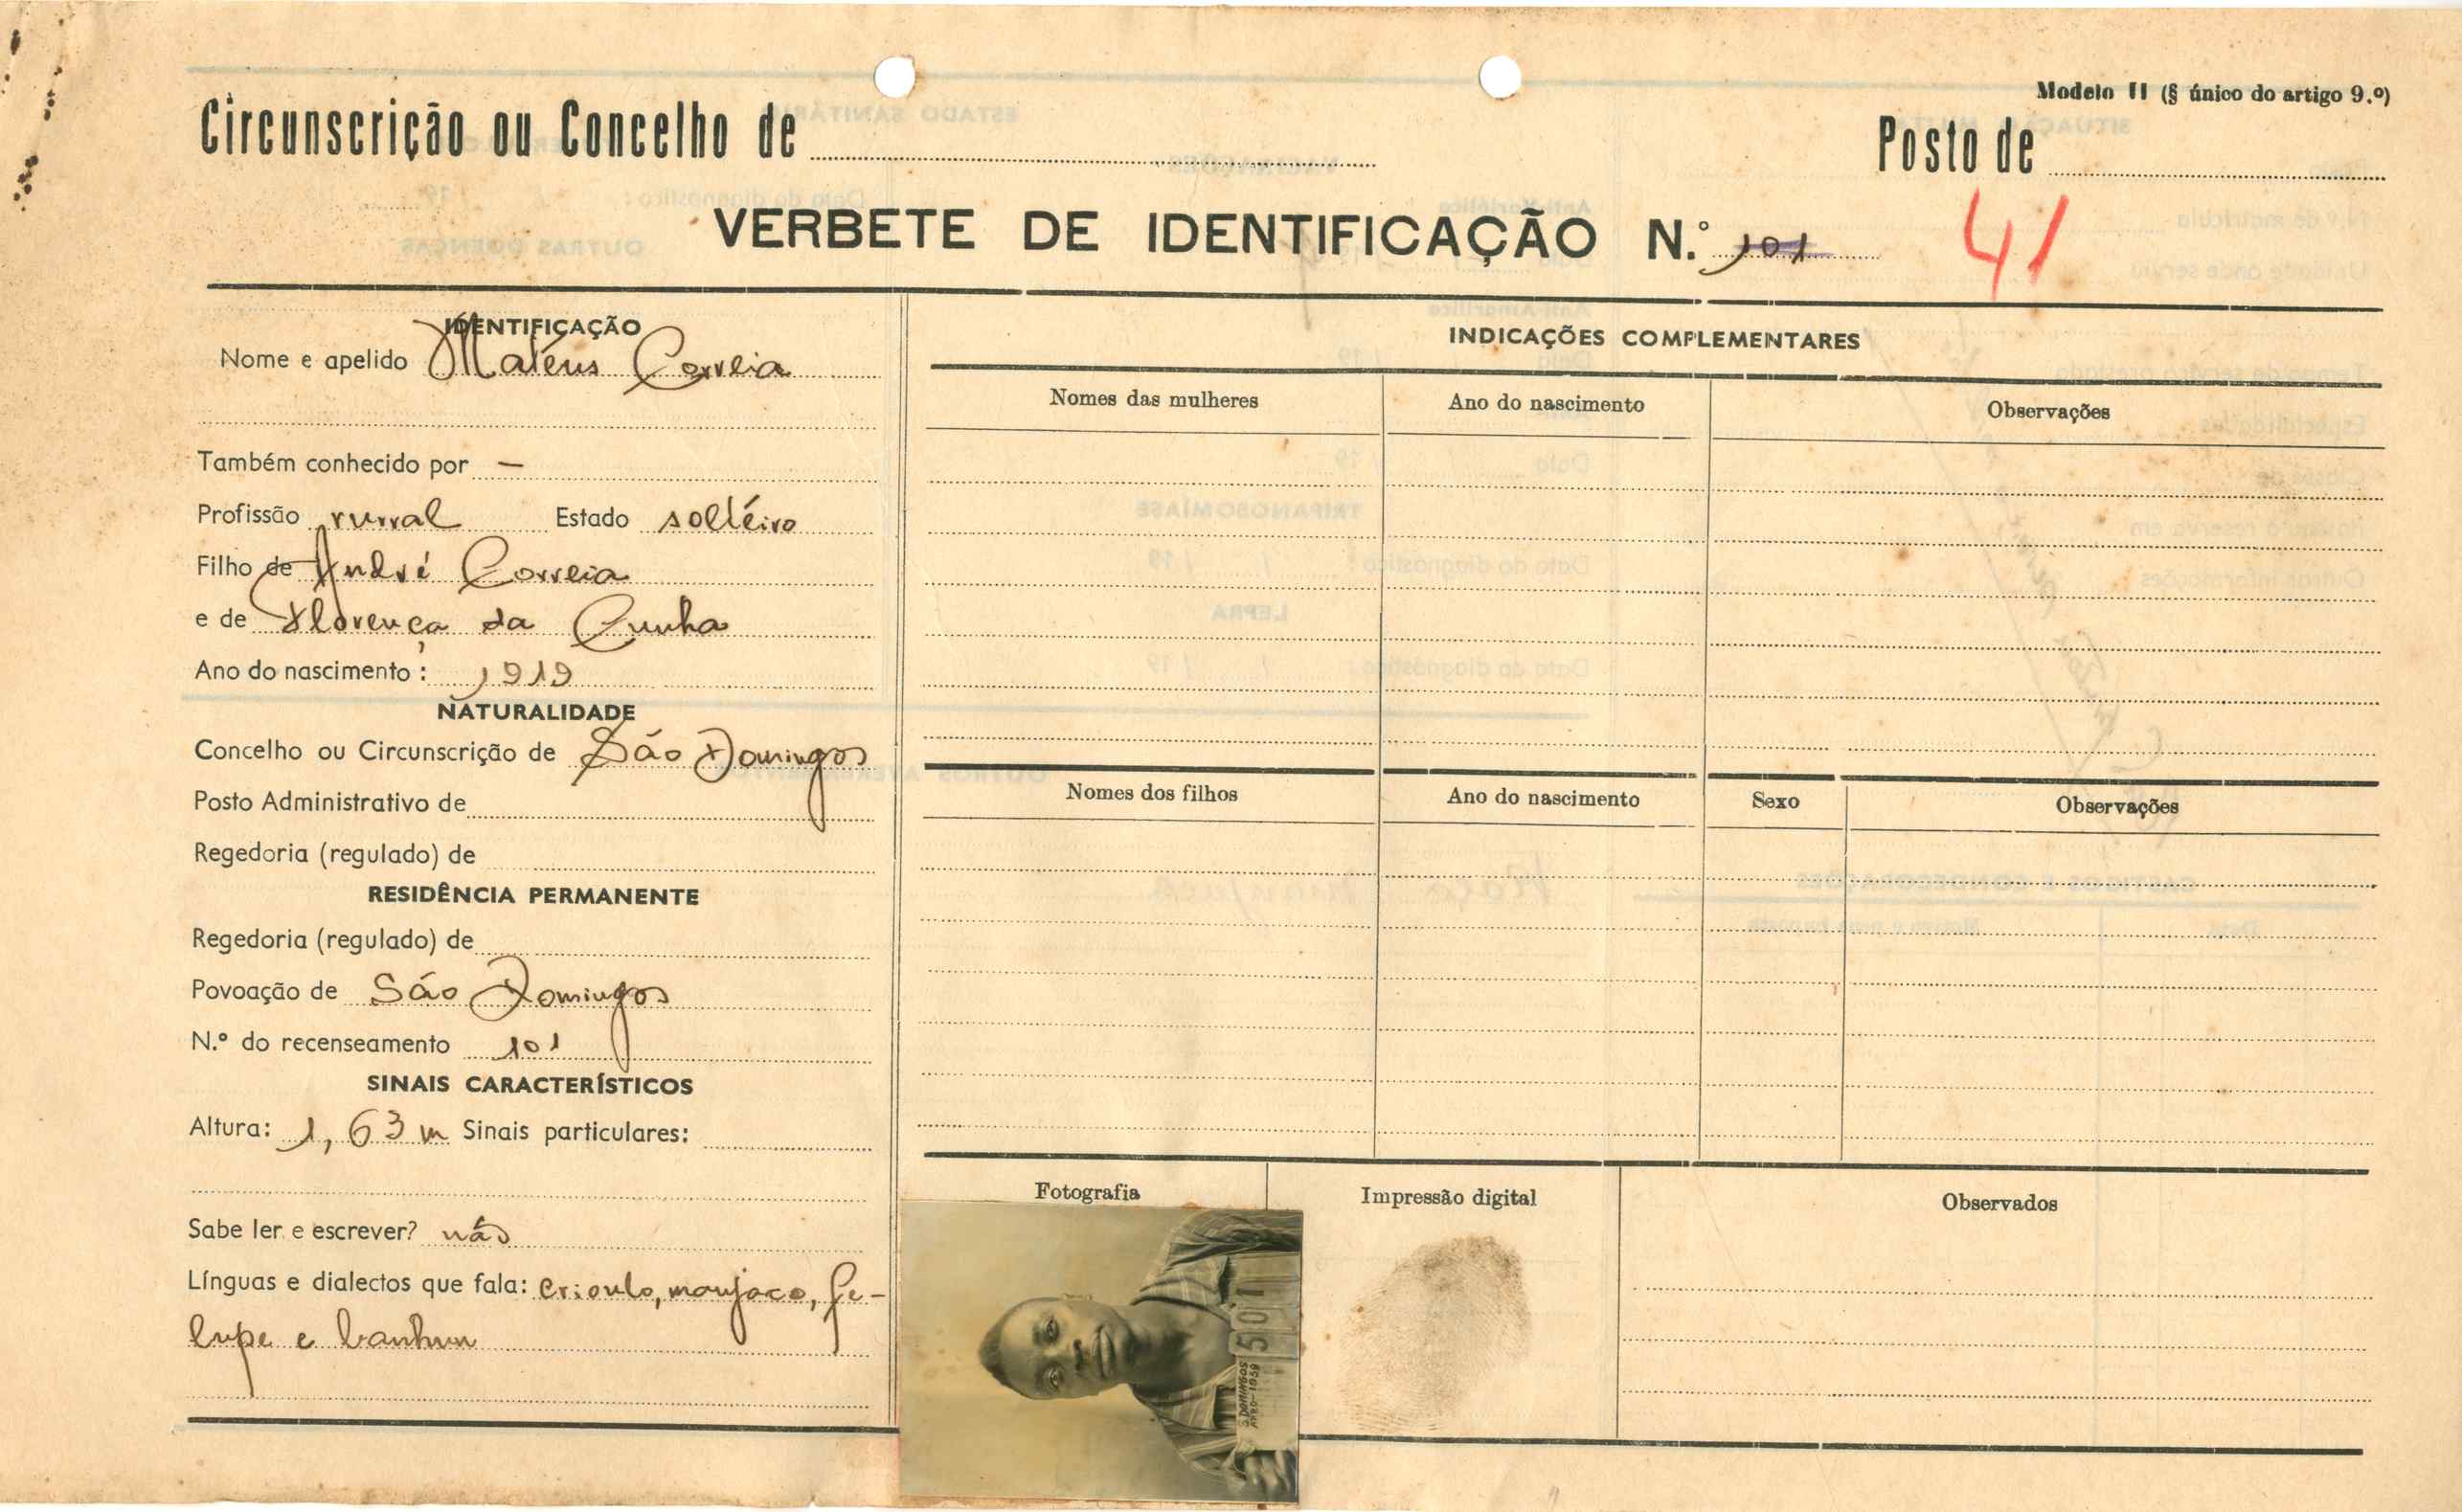 Modelo II (§ único do artigo 9.º)
Circunscrição ou Concelho de
Posto de
VERBETE DE IDENTIFICAÇÃO N.º 101
41
IDENTIFICAÇÃO
Nome e apelido Matéus Correia
Também conhecido por —
Profissão rural Estado soltéiro
Filho de André Correia
e de Florença da Cunha
Ano do nascimento: 1919
NATURALIDADE
Concelho ou Circunscrição de São Domingos
Posto Administrativo de
Regedoria (regulado) de
RESIDÊNCIA PERMANENTE
Regedoria (regulado) de
Povoação de São Domingos
N.º do recenseamento 101
SINAIS CARACTERÍSTICOS
Altura: 1,63 m Sinais particulares:
Sabe ler e escrever? não
Línguas e dialectos que fala: crioulo, manjaco, fe-
lupe e banhun
INDICAÇÕES COMPLEMENTARES
Nomes das mulheres Ano do nascimento Observações
Nomes dos filhos Ano do nascimento Sexo Observações
Fotografia Impressão digital Observados
5011
S. DOMINGOS